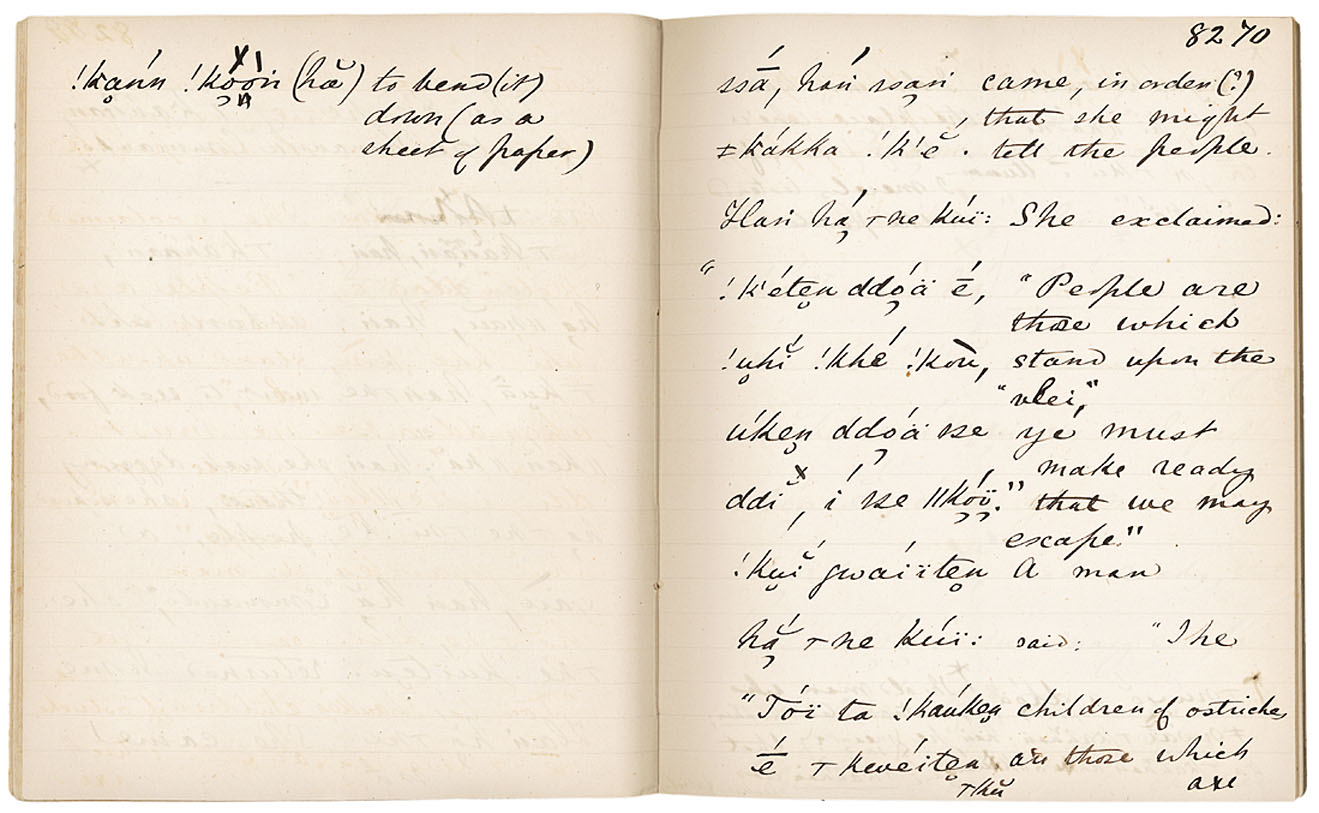 !kạńn !kọ̈ọ̈ṅ (hă) to bend (it)
down (as a
sheet of paper)
8270
ssā́, hań ssạṅ came, in order (?)
, that she might
ǂkákka !k'ĕ . tell the people.
Haṅ hạ́ ⊤ne kúï: She exclaimed:
"!k'étẹn ddọ́ä é̄, "People are
those which
!ụhĭ !khé !koù, stand upon the
"vlei,"
úkẹn ddọ́ä se ye must
make ready
ddĭ, í se ǁkọ́ọ̈." that we may
escape."
!kụĭ gwáiïtẹn A man
hặ́ ⊤ne kúï: said: "The
"Tóï ta !kaúkẹn children of ostriches
é̄ ⊤kwéitẹn are those which
⊤kŭ are